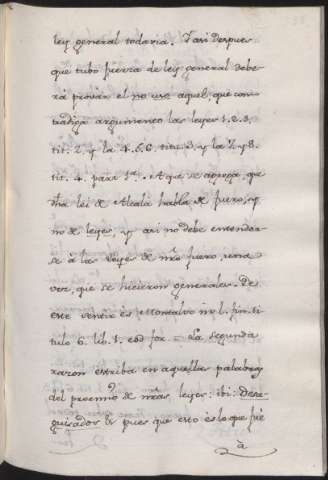 ley general todavia. Y asi despues
que tubo fuerza de ley general debe-
rá provar el no uso aquel, que con-
tradiga argumento las leyes 1. 2. 3.
tit. 2. y la 4. 5. 6. titu. 3. y la 7. y 8.
tit. 4. part. 1ª. A que se agrega, que
dha lei de Alcalá habla de fuero, y
no de leyes, y asi no debe entender-
se á las leyes de nro fuero, una
vez, que se hicieron generales. De
este sentir es Montalvo in l. fin. ti-
tulo 6. lib. 1. eod for. La segunda
razon estriba en aquellas palabras
del proemio de nras leyes: ibi: Dese-
guisados &c pues que esto es lo que fué
à